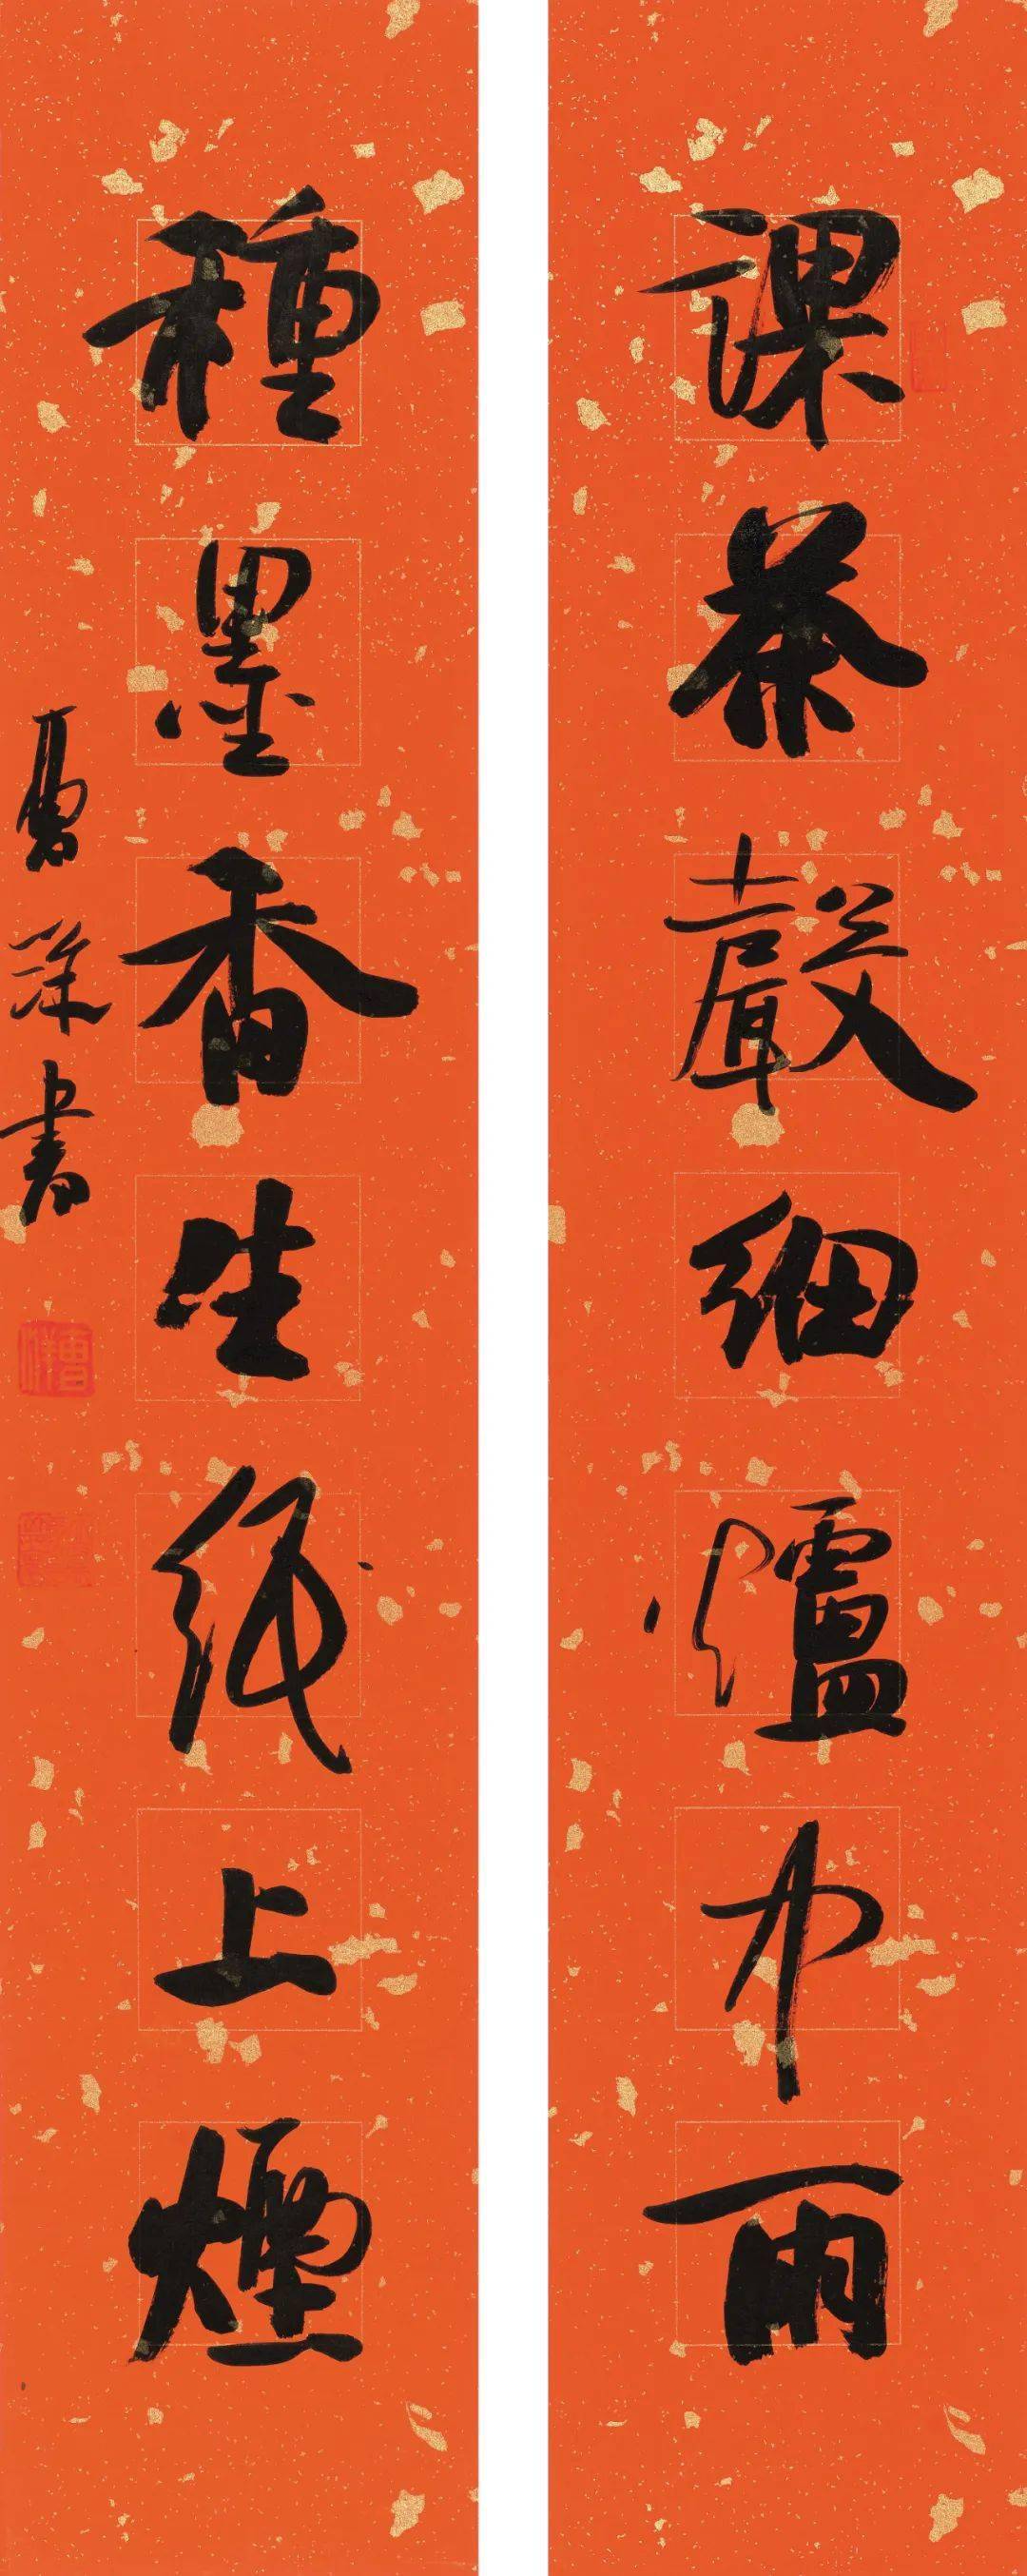 課茶聲細爐中雨
種墨香生紙上煙
書